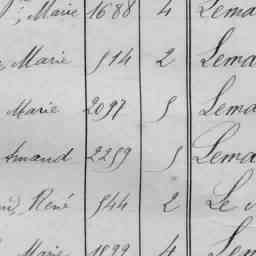 Marie 1688 4 Lema
Marie 514 2 Lema
Marie 2097 5 Lema
Amand 2259 5 Lema
René 544 2 Le
Marie 1899 4 Lem